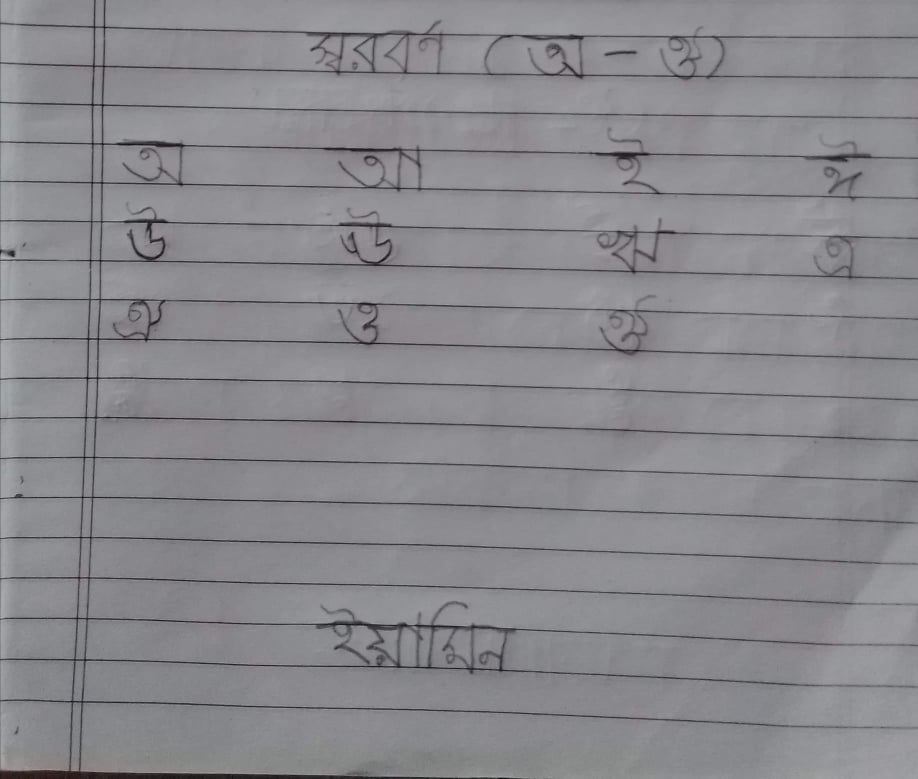 স্বরবর্ণ (অ - ঔ)
অ আ ই ঈ
উ ঊ ঋ এ
ঐ ও ঔ
ইয়ামিন